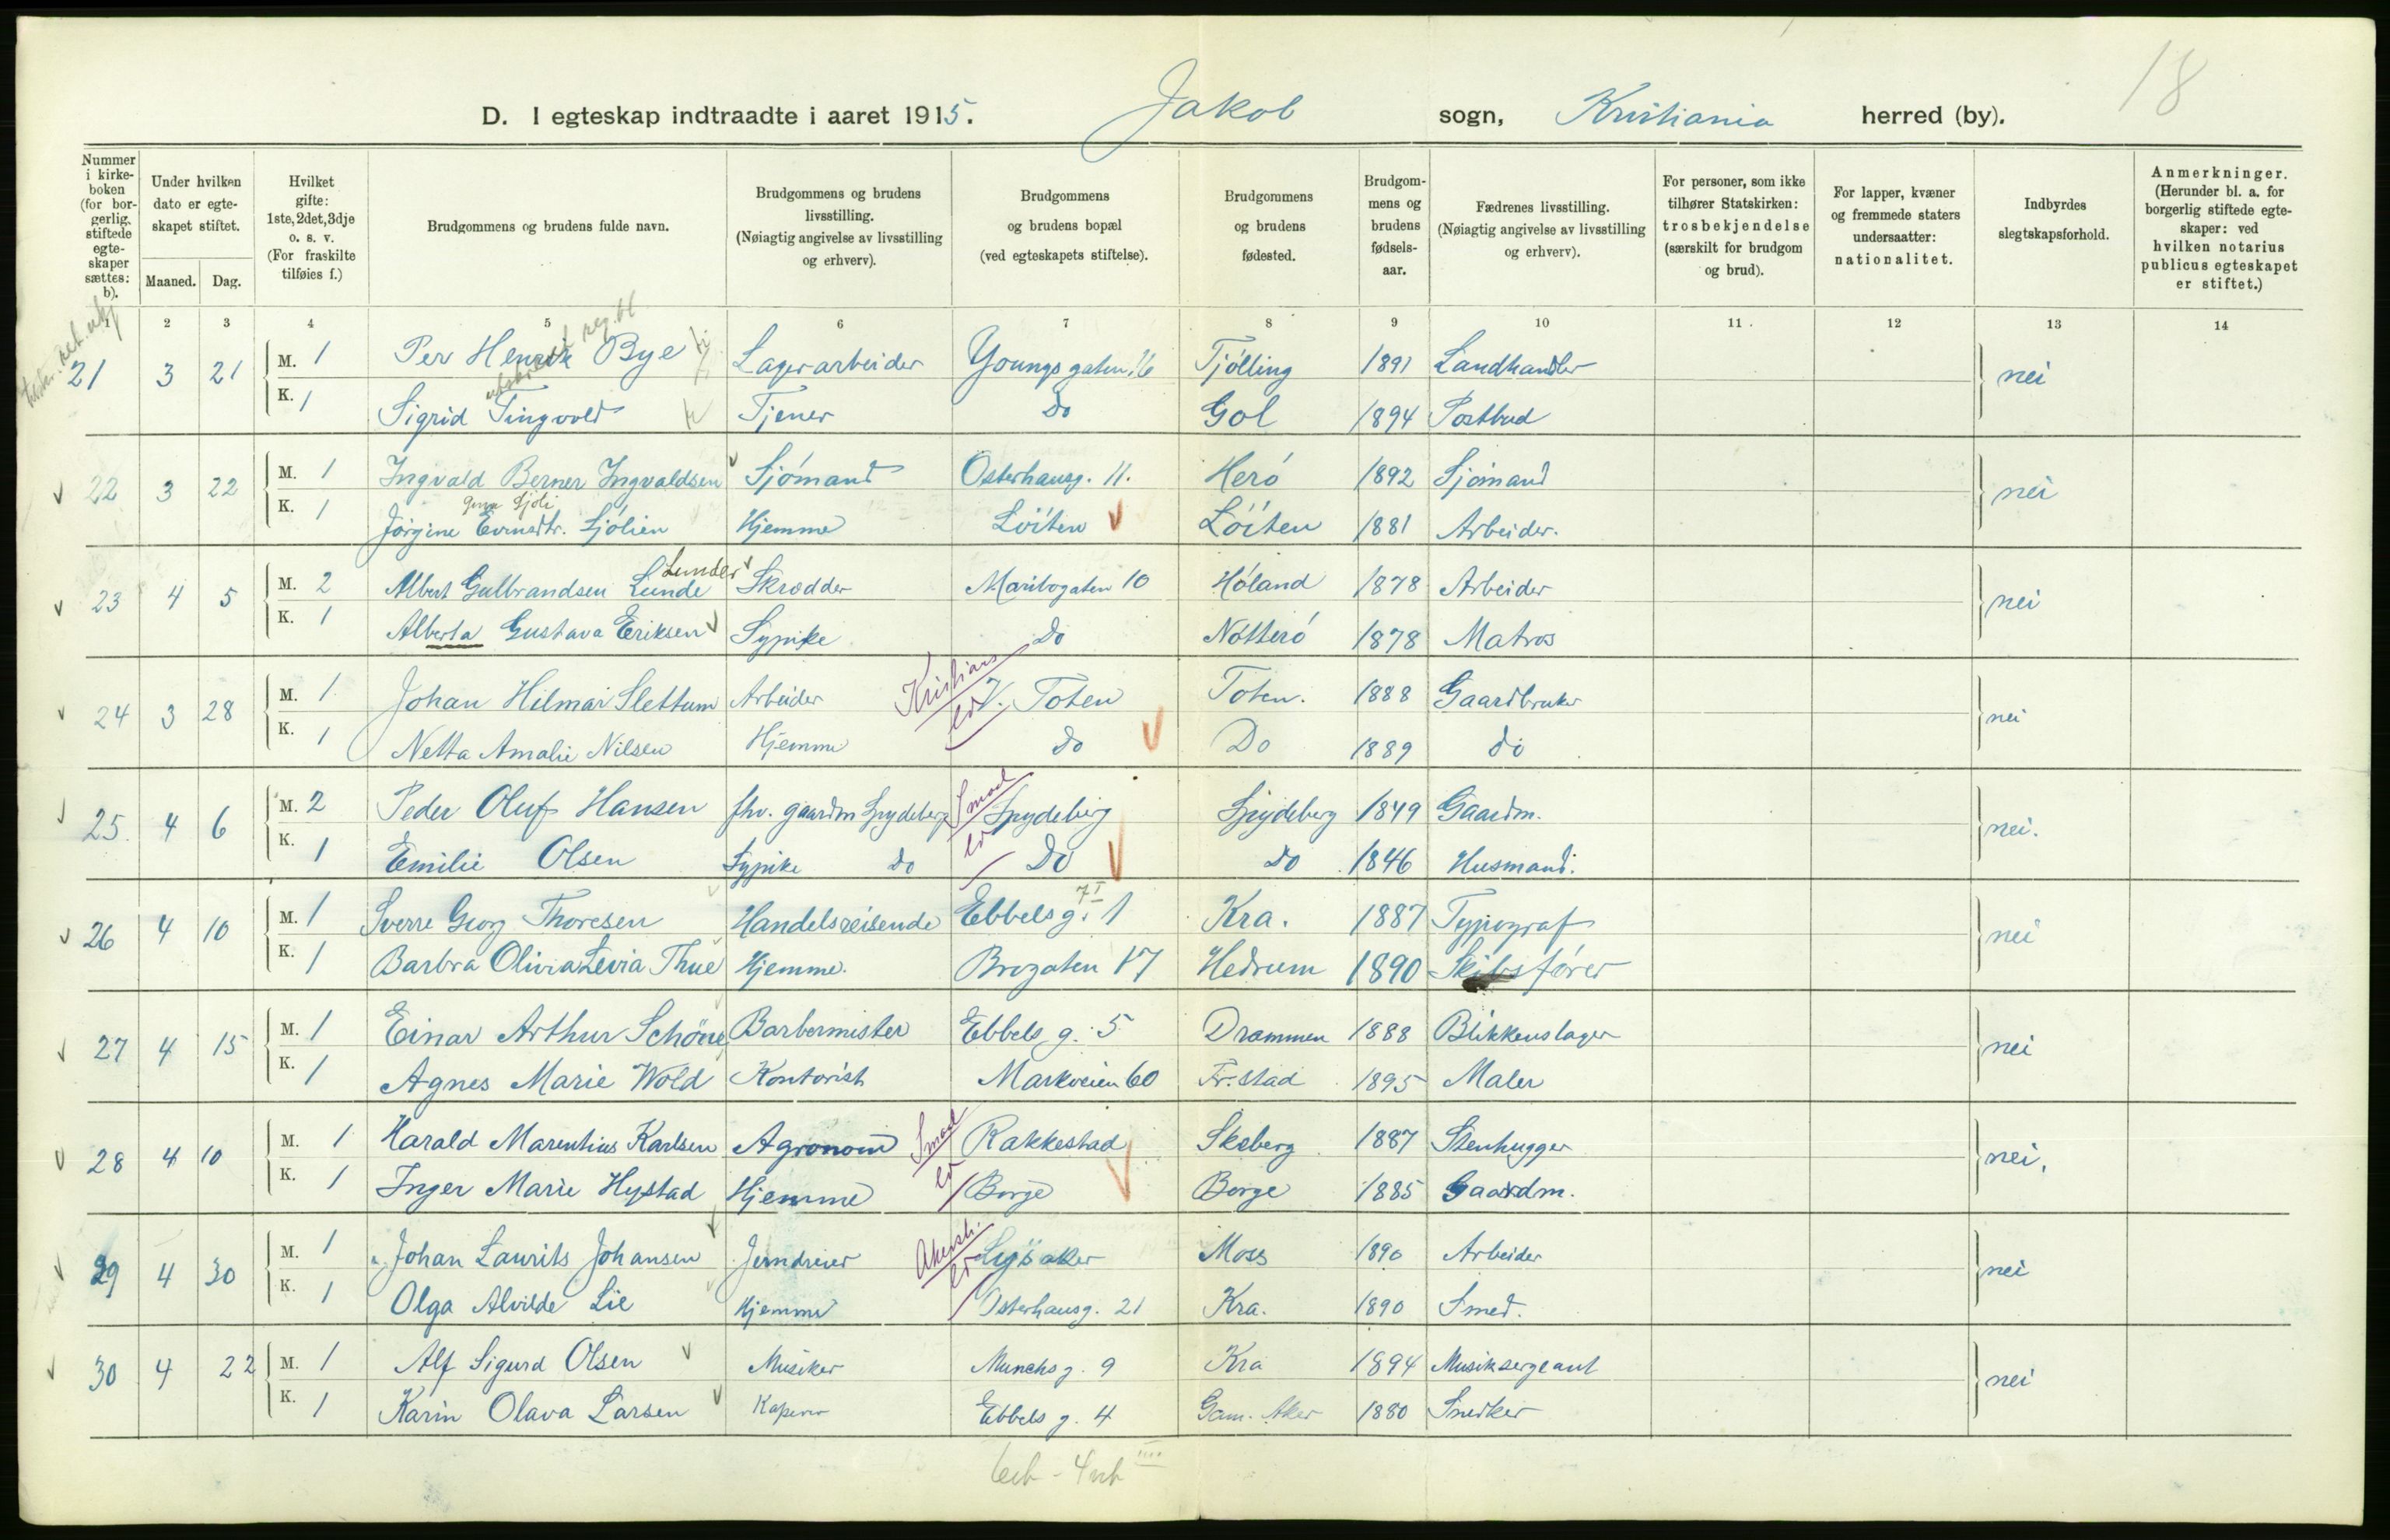 18
D. I egteskap indtraadte i aaret 1915. Jakob sogn, Kristiania herred (by).
Nummer i kirkeboken (for borgerlig stiftede egteskaper sættes: b).
Under hvilken dato er egteskapet stiftet.
Maaned. Dag.
Hvilket gifte: 1ste, 2det, 3dje o. s. v. (For fraskilte tilføies f.)
Brudgommens og brudens fulde navn.
Brudgommens og brudens livsstilling. (Nøiagtig angivelse av livsstilling og erhverv).
Brudgommens og brudens bopæl (ved egteskapets stiftelse).
Brudgommens og brudens fødested.
Brudgommens og brudens fødselsaar.
Fædrenes livsstilling. (Nøiagtig angivelse av livsstilling og erhverv).
For personer, som ikke tilhører Statskirken: trosbekjendelse (særskilt for brudgom og brud).
For lapper, kvæner og fremmede staters undersaatter: nationalitet.
Indbyrdes slegtskapsforhold.
Anmerkninger. (Herunder bl. a. for borgerlig stiftede egteskaper: ved hvilken notarius publicus egteskapet er stiftet.)
1 2 3 4 5 6 7 8 9 10 11 12 13 14
21 3 21 M. 1 Per Henrik Bye Lagerarbeider Youngsgaten 16 Tjölling 1891 Landhandler nei
K. 1 Sigrid Tingvold Tjener Do Gol 1894 Postbud
22 3 22 M. 1 Ingvald Berner Ingvaldsen Sjömand Osterhausg. 11. Herö 1892 Sjömand nei
K. 1 Jörgine Sjölien Hjemme Löiten Löiten 1881 Arbeider.
Lunder
23 4 5 M. 2 Albert Gulbrandsen Lunde Skrædder Maribogaten 10 Höland 1878 Arbeider nei
K. 1 Alberta Gustava Eriksen Sypike Do Nötterö 1878 Matros
Kristians
24 3 28 M. 1 Johan Hilmar Slettum Arbeider V. Toten Toten. 1888 Gaardbruker nei
K. 1 Netta Amalie Nilsen Hjemme do Do 1889 do
Smaal
25. 4 6 M. 2 Peder Oluf Hansen fhv. gaardm Spydeberg Spydeberg Spydeberg 1849 Gaardm. nei.
K. 1 Emilie Olsen Sypike do Do Do 1846 Husmand.
26 4 10 M. 1 Sverre Georg Thoresen Handelsreisende Ebbelsg. 1 Kra. 1887 Typograf nei
K. 1 Barbra Olivia Levia Thue Hjemme. Brogaten 17 Hedrum 1890 Skibsförer
27 4 15 M. 1 Einar Arthur Schöne Barbermister Ebbels g. 5 Drammen 1888 Blikkenslager nei
K. 1 Agnes Marie Wold Kontorist Markveien 60 Fr.stad 1895 Maler
Smaal
28 4 10 M. 1 Harald Marentius Karlsen Agronom Rakkestad Skeberg 1887 Stenhugger nei.
K. 1 Inger Marie Hystad Hjemme Borge Borge 1885 Gaardm.
Akersh.
29 4 30 M. 1 Johan Laurits Johansen Jerndreier Lysaker Moss 1890 Arbeider nei
K. 1 Olga Alvilde Lie Hjemme Osterhausg. 21 Kra. 1890 Smed.
30 4 22 M. 1 Alf Sigurd Olsen Musiker Munchsg. 9 Kra 1894 Musiksergeant nei
K. 1 Karin Olava Larsen Ebbels g. 4 Gam. Aker 1880 Snedker